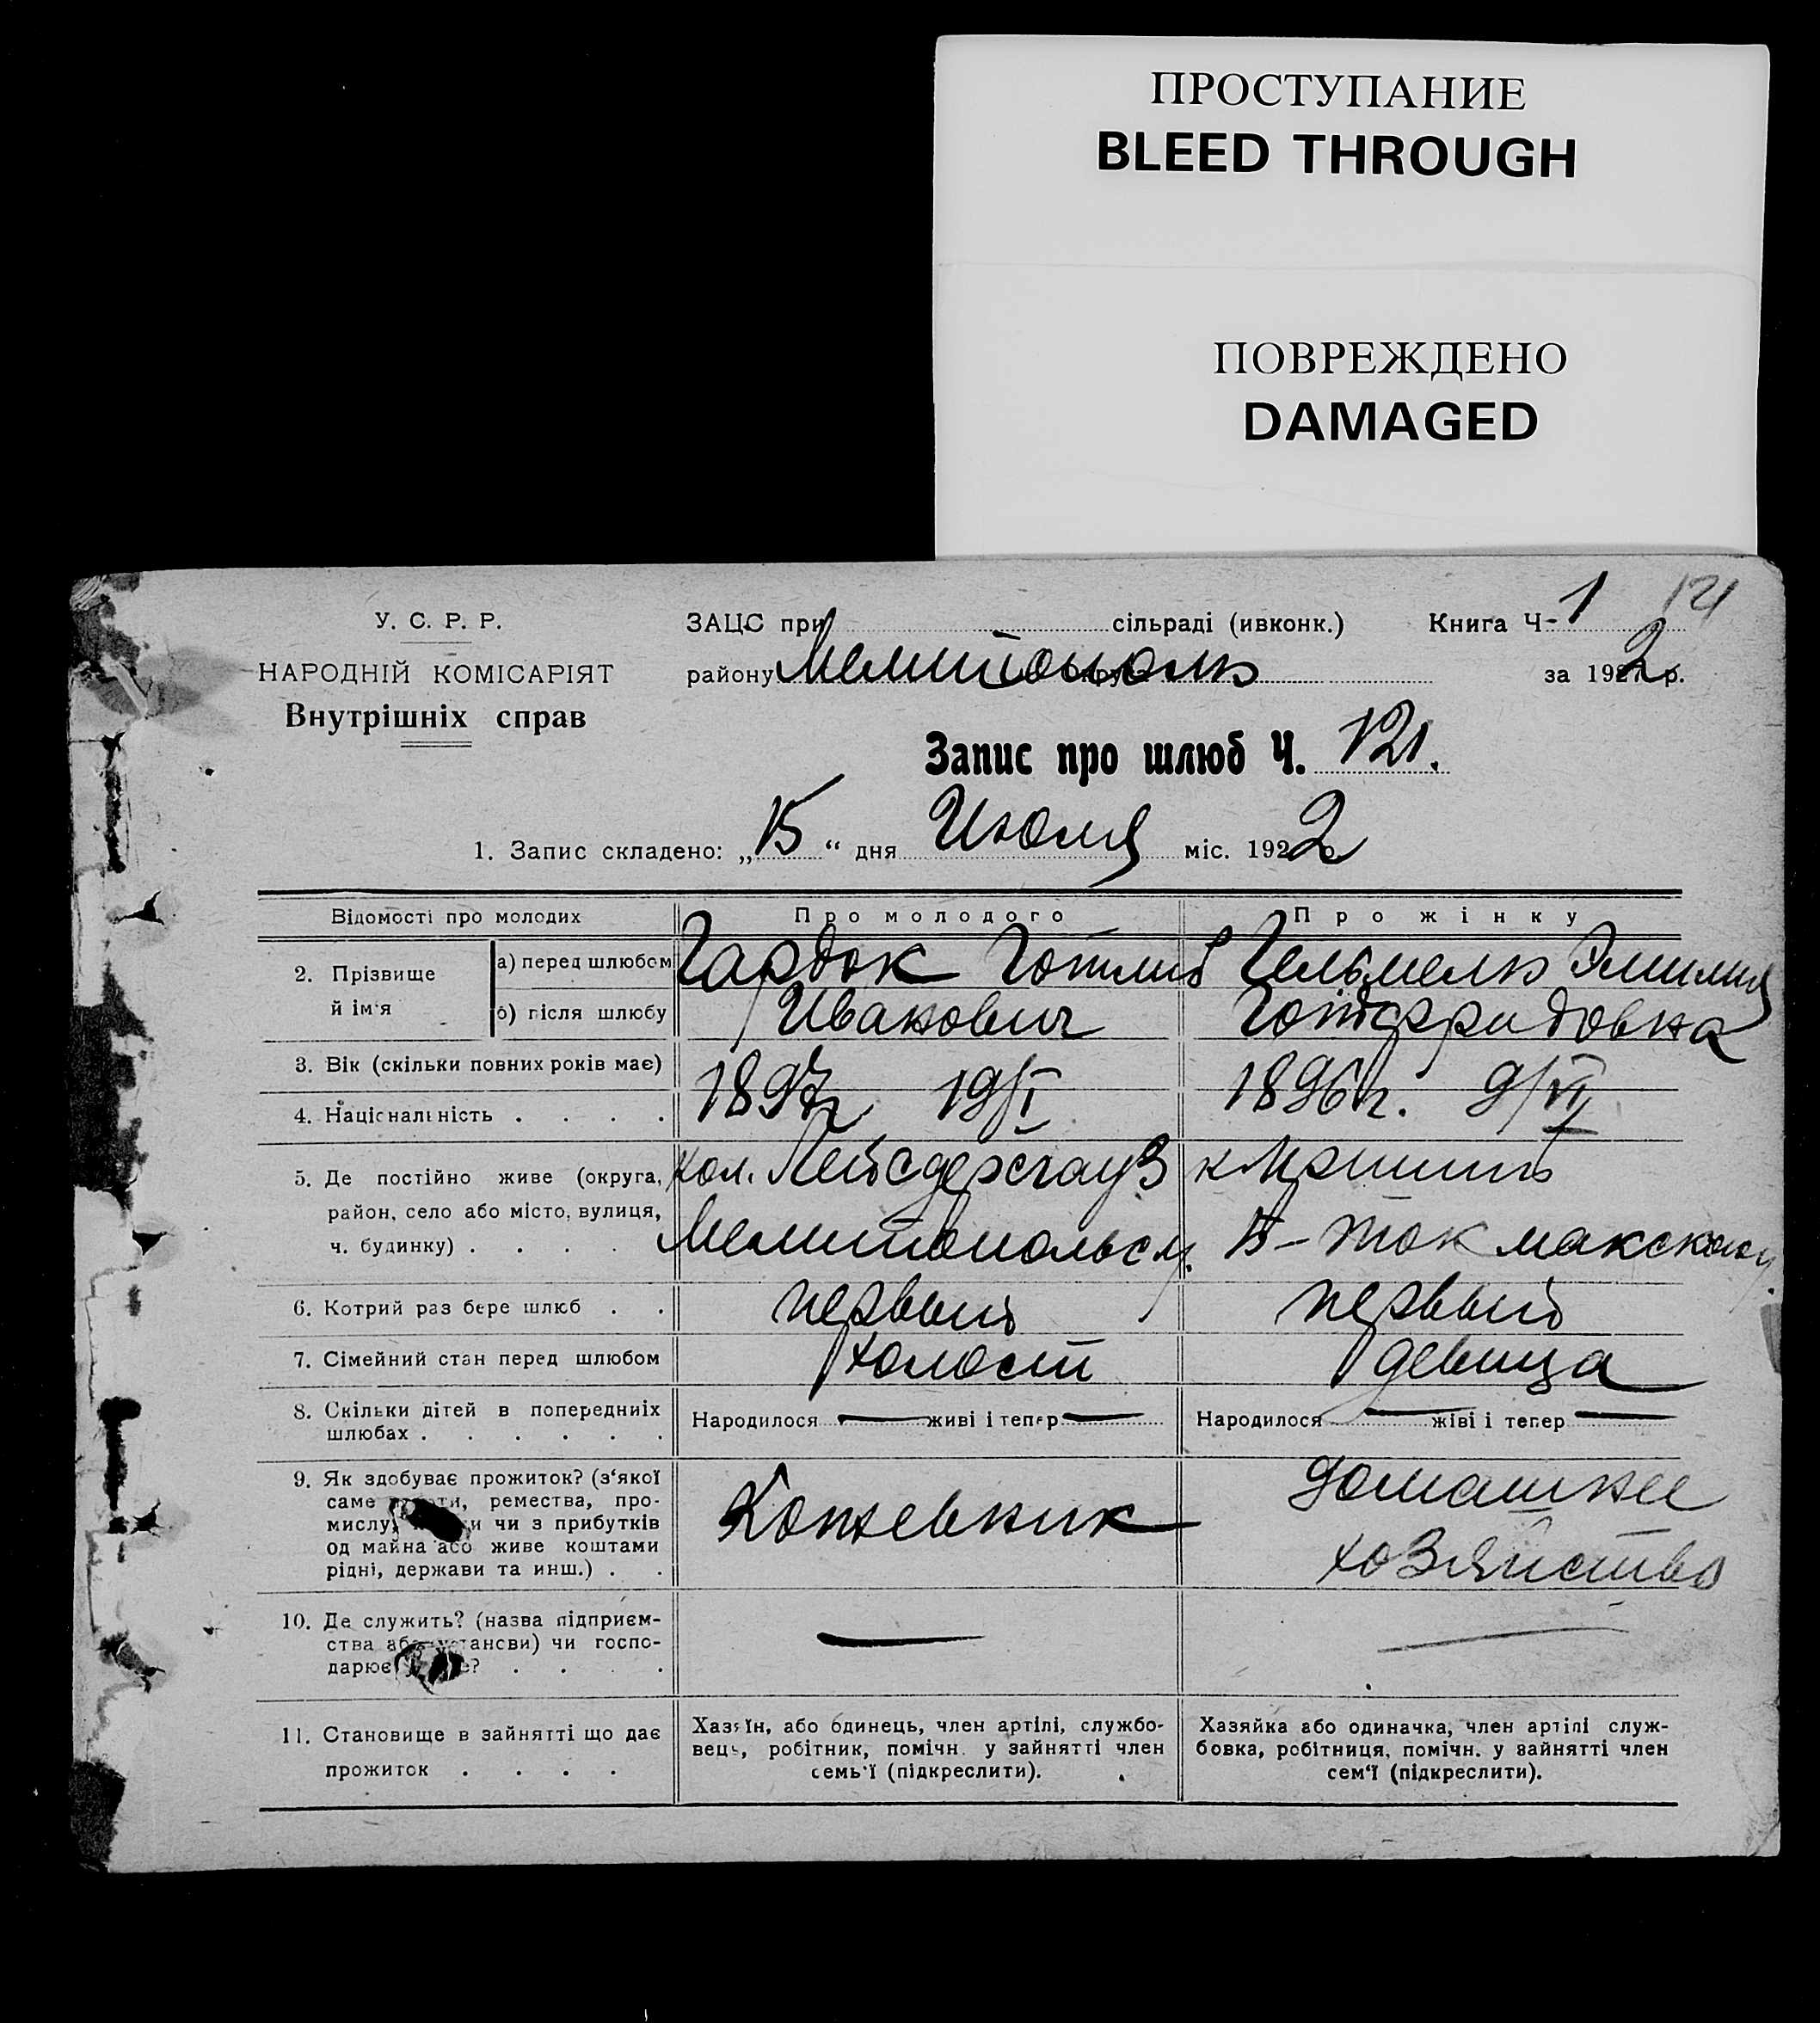 ПРОСТУПАНИЕ
BLEED THROUGH
ПОВРЕЖДЕНО
DAMAGED
1 121
У. С. Р. Р.
ЗАЦС при сільраді (ивконк.) Книга Ч-
НАРОДНІЙ КОМІСАРІЯТ
району Мелитополь за 1922 р.
Внутрішніх справ
Запис про шлюб Ч. 121.
1. Запис складено: „15“ дня Июля міс. 1922
Відомості про молодих Про молодого Про жінку
2. Прізвище й ім'я
а) перед шлюбом Гардок Готлиб Гельмель Эмилия
б) після шлюбу Иванович Готфридовна
3. Вік (скільки повних років має)
1897г 19/I 1896г. 9/VI
4. Національність . . . .
5. Де постійно живе (округа, кол. Кмышит
район, село або місто, вулиця,
ч. будинку) . . . . Мелитопольск. Б-Токмакской
6. Котрий раз бере шлюб . . первый первый
7. Сімейний стан перед шлюбом холост девица
8. Скільки дітей в попередніх Народилося — живі і тепер — Народилося — жіві і тепер —
шлюбах . . . . . .
9. Як здобуває прожиток? (з'якої
саме ремества, про-
мислу, и чи з прибутків
од майна або живе коштами
рідні, держави та инш.) . .
Кожевник домашнее
хозяйство
10. Де служить? (назва підприєм-
ства або установи) чи госпо-
дарює . . . .
— —
11. Становище в зайнятті що дає
прожиток . . . .
Хазяїн, або одинець, член артілі, службо-
вець, робітник, помічн. у зайнятті член
семь'ї (підкреслити).
Хазяйка або одиначка, член артілі служ-
бовка, робітниця, помічн. у зайнятті член
сем'ї (підкреслити).